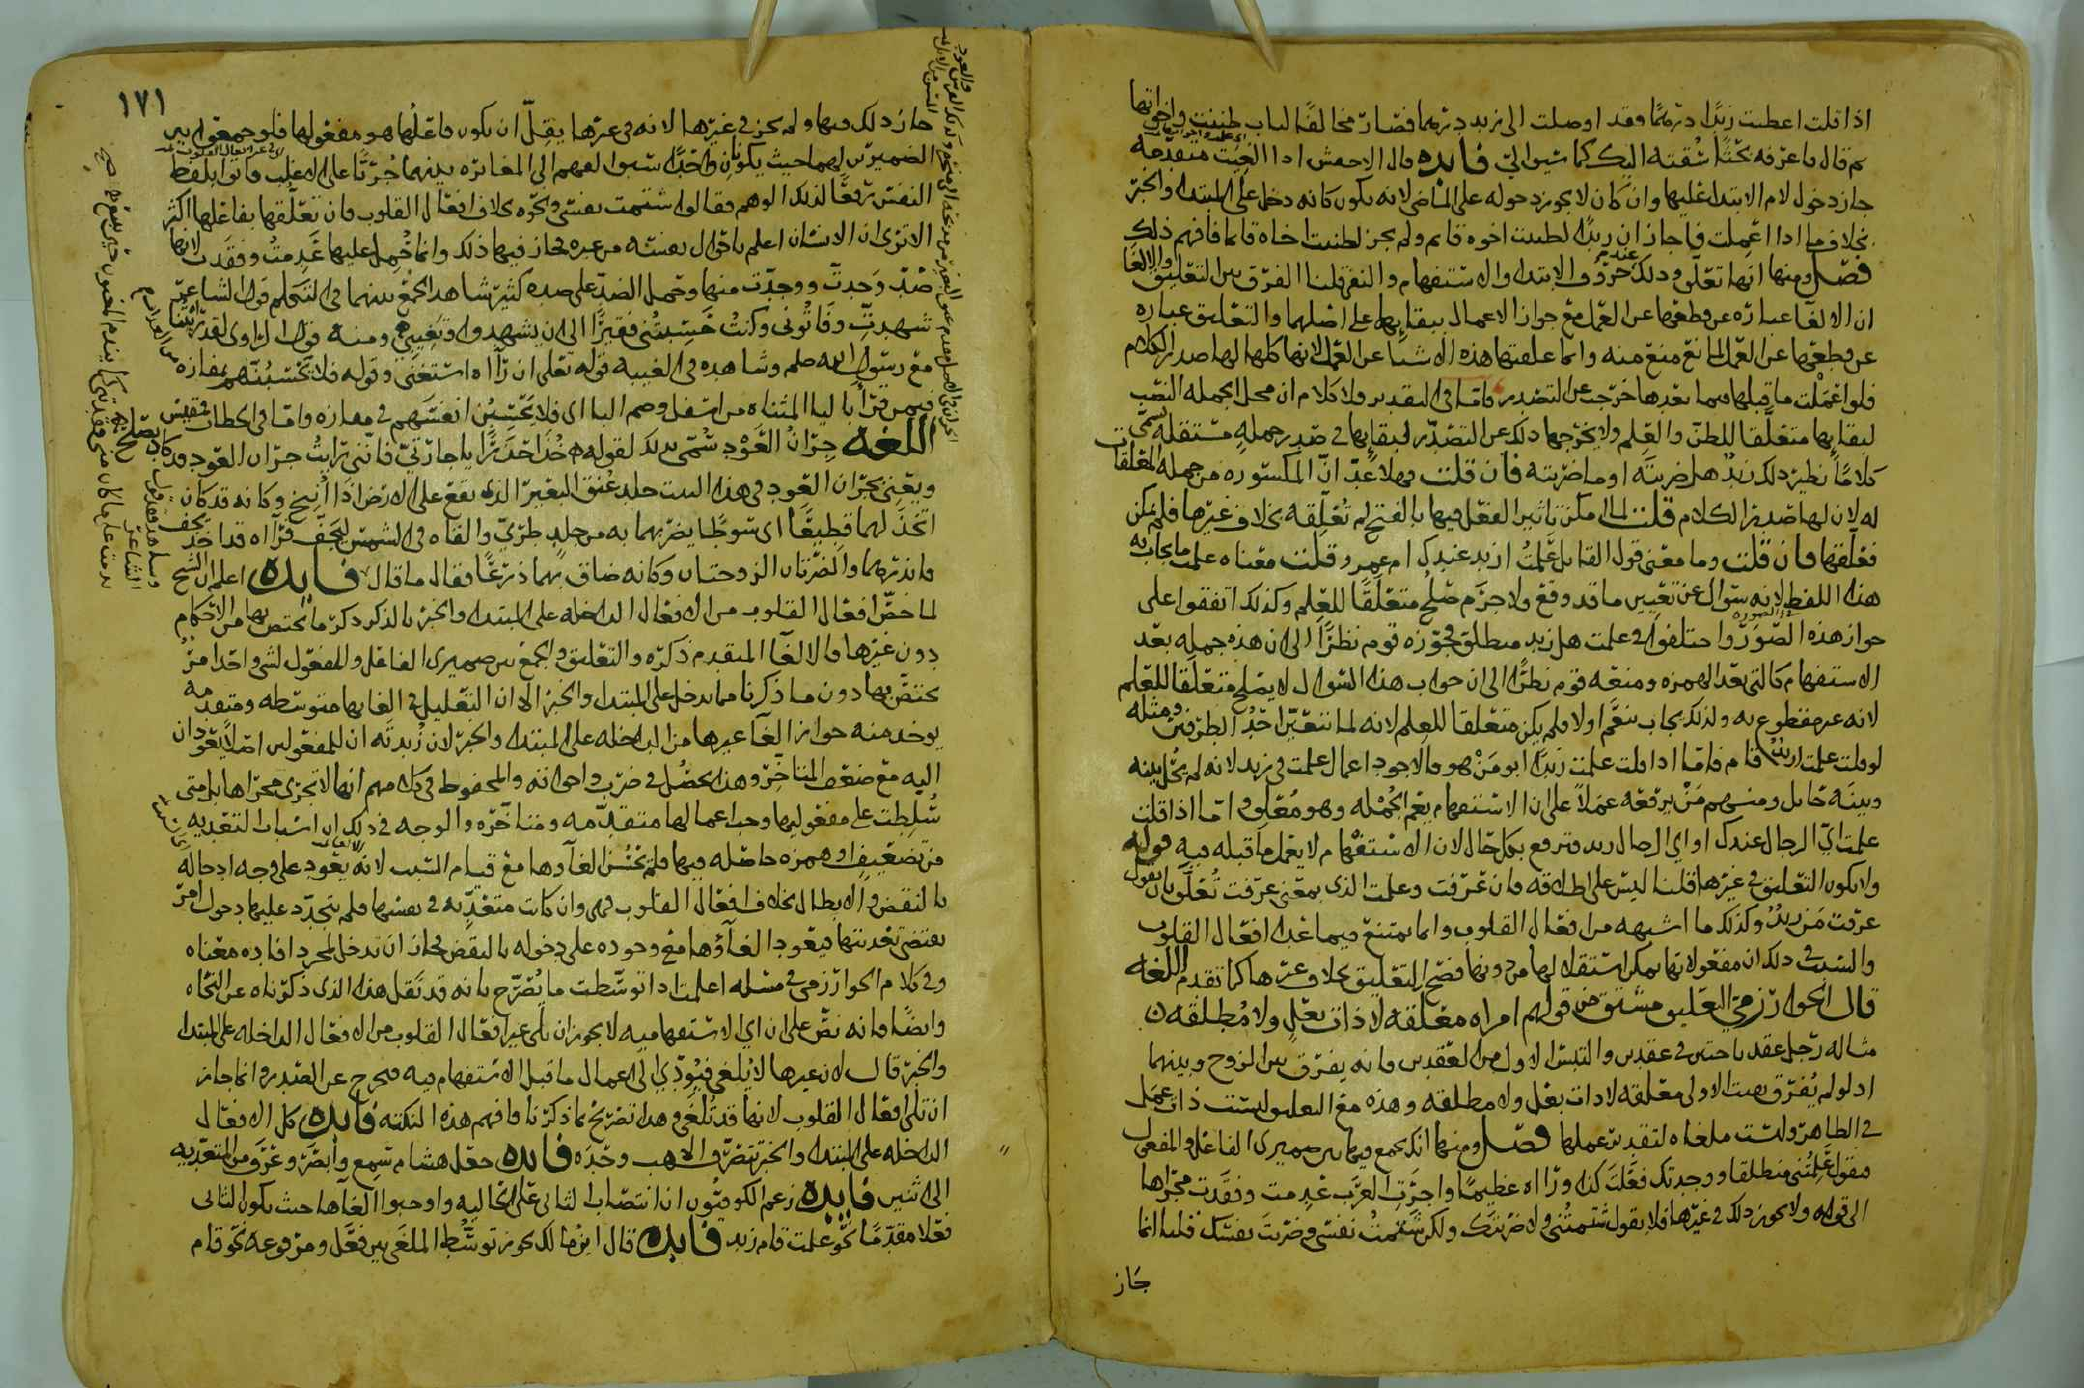 اذا قلت اعطيت زيدًا درهمًا وقد اوصلت الى زيد درهما فصار مخالفًا لباب ظننت واخواتها
ثم قال ما عرفه بحثًا سقته اليك كما سبق الى فايده قال الاخفش اذا الغيت متقدمة
جاز دخول لام الابتداء عليها وان كان لا يجوز دخوله على الماضى لانه يكون كانه دخل على المبتدا والخبر
بخلاف ما اذا اعملت فاجاز ان زيدًا لظننت اخوه قايم ولم يجز لظننت اخاه قايما فافهم ذلك
فصل ومنها انها تعلق وذلك عند حروف الابتدا والاستفهام والنفى قلنا الفرق بين التعليق والالغا
ان الالغا عباره عن قطعها عن العمل مع جواز الاعمال ببقايها على اصلها والتعليق عباره
عن قطعها عن العمل لمانع منع منه وانما علقتها هذه الاشيا عن العمل لانها كلها لها صدر الكلام
فلو اعملت ما قبلها فيما بعدها خرجت عن التصدير فاما فى التقدير فلا كلام ان محل الجمله النصب
لبقايها متعلقا للظن والعلم ولا يخرجها ذلك عن التصدر لبقايها فى صدر جملةٍ مستقله تسمى
كلامًا نظير ذلك زيد هل ضربته او ما ضربته فان قلت فهلا عدّ انّ المكسوره من جمله المعلقات
له لان لها صدر الكلام قلت لما لم يكن تاثير الفعل فيها بالفتح لم تعلقه بخلاف غيرها فلم يمكن
فعلقها فان قلت وما معنى قول القايل علمتُ ازيد عندك ام عمرو قلت معناه علمت ما يجاب به
هذا اللفظ لانه سوال عن تعيين ما قد وقع ولا جرم صلح متعلقًا للعلم وكذلك اتفقوا على
جواز هذه الصور واختلفوا فى علمت هل زيد منطلق فجوزه قوم نظرًا الى ان هذه جمله بعد
الاستفهام كالتى بعد الهمزه ومنعه قوم نظرًا الى ان جواب هذا السوال لا يصلح متعلقا للعلم
لانه غير مقطوع به ولذلك يجاب بنعم او لا فلم يكن متعلقا للعلم لانه لما تتعين احد الطرفين ومثله
لو قلت علمت ازيد قام فاما اذا قلت علمت زيدًا ابو مَنْ هو فالاجود اعمال علمت فى زيد لانه لم يحل بينه
وبينه حايل ومنهم مَنْ يرفعه عملاً على ان الاستفهام يعم الجمله وهو مُعَلَّق واما اذا قلت
علمت ايّ الرجال عندك او اي الرجال زيد فترفع بكل حال لان الاستفهام لا يعمل ما قبله فيه قوله
ولا يكون التعليق فى غيرها قلنا ليس على اطلاقه فان عرفت وعلمت الذى بمعنى عرفت تُعَلَّق بان يقول
عرفت مَن زيدٌ وكذلك ما اشبهه من افعال القلوب وانما يمتنع فيما عدا افعال القلوب
والسبب فى ذلك ان مفعولاتها يمكن استقلالها من دونها فصح التعليق بخلاف غيرها كما تقدم اللغه
قال الخوارزمي التعليق مشتق من قولهم امراه معلقه لا ذات بعلٍ ولا مُطلقه
مثاله رجل عقد باختين فى عقدين والتبس الاول من العقدين فانه يفرق بين الزوج وبينهما
اذ لو لم يُفرّق بقيت الاولى معلقه لا ذات بعل ولا مطلقه وهذه مع التعليق ليست ذات عمل
فى الظاهر وليست ملغاه لتقدير عملها فصل ومنها انك تجمع فيها بين ضميرى الفاعل والمفعول
فتقول علمتُنى منطلقا ووجدتك فعلتَ كذا ورآه عظيمًا واجرت العرب عدمت وفقدت مجراها
الى قوله ولا يجوز ذلك فى غيرها فلا يقول شتمتُنى ولا ضربتَك ولكن شتمتُ نفسى وضربتَ نفسك قلنا انما
جاز
١٧١
جاز ذلك فيها ولم يجز فى غيرها لانه فى غيرها يقلّ ان يكون فاعلها هو مفعولها فلو جمعوا بين
الضميرين لهما حيث يكونان واحدًا سبق الفهم الى المغايره بينهما جُرْيًا على الاغلب فاتوا بلفظ
النفس رفعًا لذلك الوهم فقالوا شتمت نفسى ونحوه بخلاف افعال القلوب فان تعلقها بفاعلها اكثر
الا ترى ان الانسان اعلم باحوال نفسه من غيره فجاز فيها ذلك وانما حُمل عليها عَدِمتُ وفقدت لانها
ضدّ وَجدتّ ووجدّت منها وحمل الضدّ على ضده كثير شاهد الجمع بينهما فى التكلم قول الشاعر
شهدتّ وفاتونى وكنتُ حَسِبتُنى فقيرًا الى ان يشهدوا وتغيبى ومنه قول الراوى لقد رايتنا
مع رسول الله صلعم وشاهده فى الغيبه قوله تعلى ان رآه استغنى وقوله فلا تحسبنهم بمفازه من العذاب
فيمن قرا باليا المثناه من اسفل وضم البا اى فلا يحسبُن انفسهم فى مفازه واما فى الخطاب فقيس
اللغه جِرَانُ العَوْدِ سُمّى بذلك لقوله خُذَا حَذَرًا يا جارتىّ فانّنى رايتُ جران العود قد كاد يصلح
ويعنى بجران العود فى هذا البيت جلد عُنق البعير الذى يقع على الارض اذا أُنيخ وكانه قد كان
اتخذ لهما قطيعًا اى سوطًا يضربهما به من جلدٍ طرىّ والقاه فى الشمس ليجف فرآه قد اخذ يجف
فانذرهما والضرتان الزوجتان وكانه ضاق بهما ذرعًا فقال ما قال فايده اعلم ان الشيخ
لما خصّ افعال القلوب من الافعال الداخله على المبتدا والخبر بالذكر ذكر ما يختص بها من الاحكام
دون غيرها والالغا المتقدم ذكره والتعليق والجمع بين ضميرى الفاعل والمفعول لشى واحد امرٌ
يختصّ بها دون ما ذكرنا مما يدخل على المبتدا والخبر الا ان التعليل فى الغايها متوسطه ومتقدمه
يوخذ منه جواز الغآ غيرها من الداخله على المبتدا والخبر لان زُبدته ان للمفعولين اصلاً يعودان
اليه مع ضعف المتاخر وهذا يحصُل فى ضرب واخواته والمحفوظ فى كلامهم انها لا تجرى مجراها بل متى
سُلّطت على مفعوليها وجب اعمالها متقدّمه ومتاخره والوجه فى ذلك ان اسباب التعديه
من تضعيفٍ او همزه حاصله فيها فلم يَحْسُن الغآوها مع قيام السبب لانه يعود على وجه ادخاله
بالنقض والابطال بخلاف افعال القلوب فهى وان كانت متعدّيه فى نفسها فلم يتجدّد عليها دخول امرٍ
يقتضى تعديتها فيعود الغآؤها مع وجوده على دخوله بالنقض فجاز ان تدخل لمجرد افاده معناه
وفى كلام الخوارزمى فى مسله اعلمت اذا توسّطت ما يُصَرّح بانه قد نقل هذا الذى ذكرناه عن النحاه
وايضًا فانه نصّ على ان اي الاستفهاميه لا يجوز ان تلى غير افعال القلوب من الافعال الداخله على المبتدا
والخبر قال لان غيرها لا يُلغى فيودّي الى اعمال ما قبل الاستفهام فيه فيخرج عن الصدر وانما جاز
ان تلى افعال القلوب لانها قد تُلغى وهذا تصريح بما ذكرنا فافهم هذه النكته فايده كل الافعال
الداخله على المبتدا والخبر تتصرف الا هب وحده فايده جعل هشام سمع وابصر وعرف من المتعديه
الى اثنين فايده زعم الكوفيّون ان انتصاب الثانى على الحاليه واوجبوا الغآها حيث يكون الثانى
فعلا مقدّمًا نحو علمت قام زيد فايده قال ايضًا لا يجوز توسُّط الملغى بين فعل ومرفوعه نحو قام